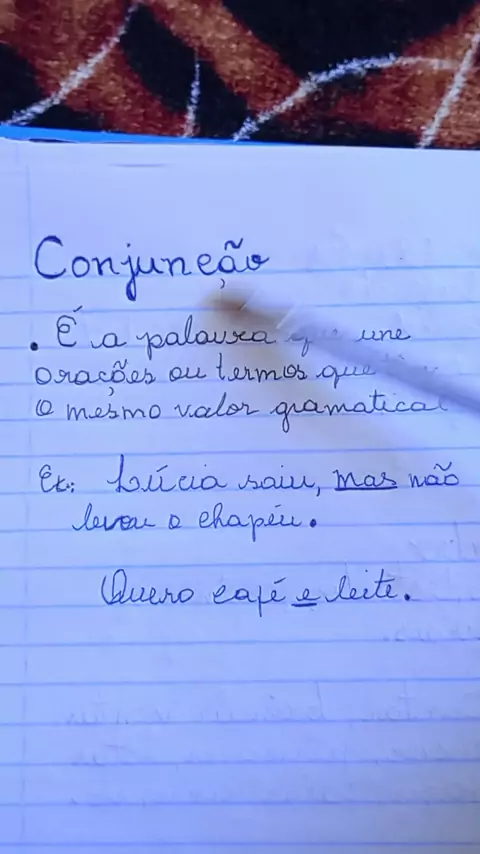 Conjunção
. É a palavra que une
orações ou termos que
o mesmo valor gramatical
Ex: Lúcia saiu, mas não
levou o chapéu.
Quero café e leite.